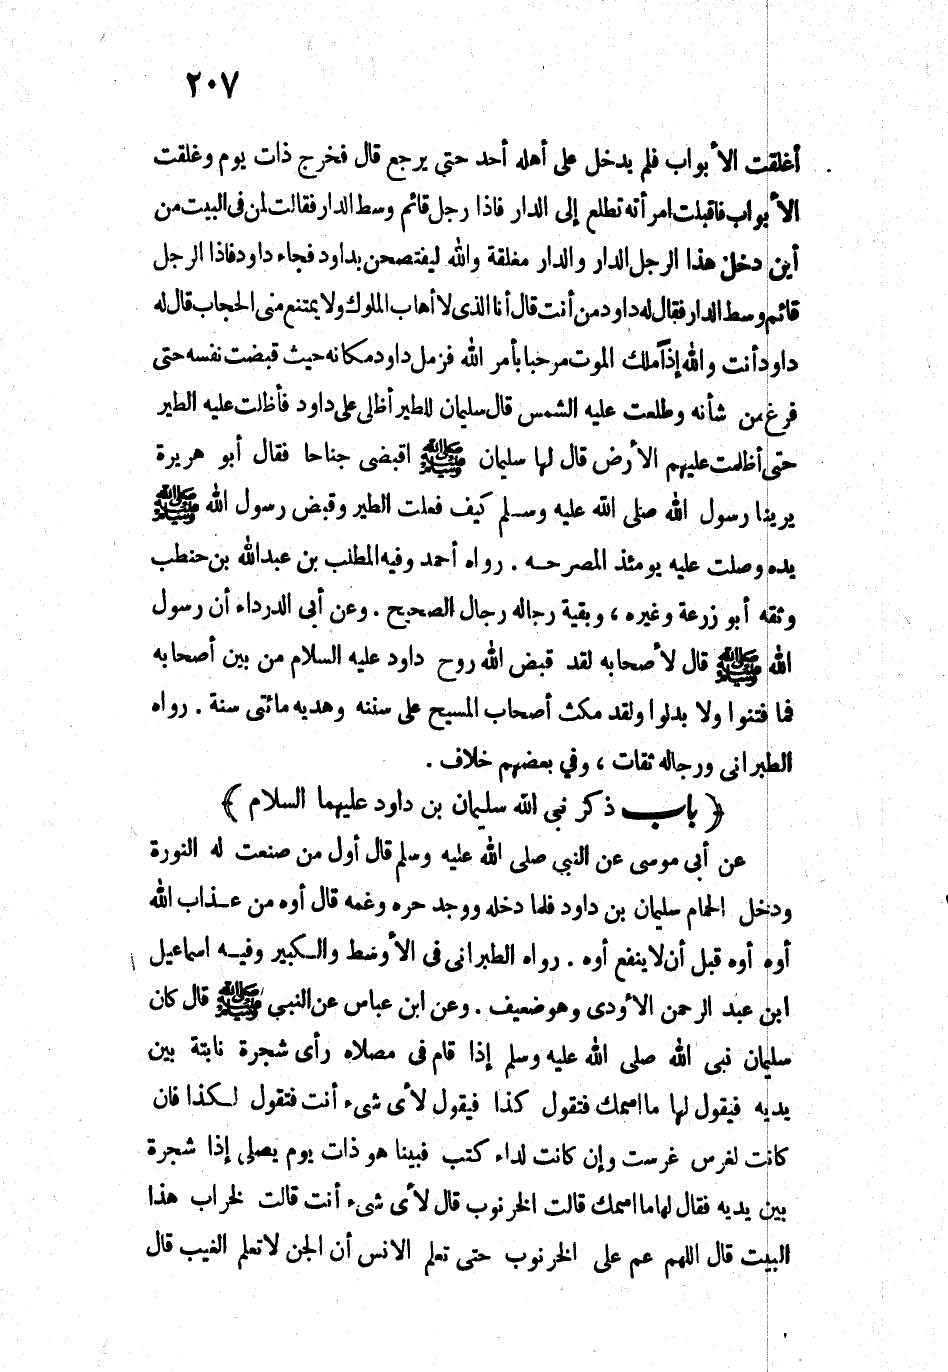 ٢٠٧
أغلقت الأبواب فلم يدخل على أهله أحد حتى يرجع قال فخرج ذات يوم وغلقت
الأبواب فاقبلت امرأته تطلع إلى الدار فاذا رجل قائم وسط الدار فقالت لمن فى البيت من
أين دخل هذا الرجل الدار والدار مغلقة والله ليفتضحن بداود فجاء داود فاذا الرجل
قائم وسط الدار فقال له داود من أنت قال أنا الذى لا أهاب الملوك ولا يمتنع منى الحجاب قال له
داود أنت والله إذاً ملك الموت مرحبا بأمر الله فزمل داود مكانه حيث قبضت نفسه حتى
فرغ من شأنه وطلعت عليه الشمس قال سليمان للطير أظلى على داود فأظلت عليه الطير
حتى أظلمت عليهم الأرض قال لها سليمان ﷺ اقبضى جناحا فقال أبو هريرة
يرينا رسول الله صلى الله عليه وسلم كيف فعلت الطير وقبض رسول الله ﷺ
يده وصلت عليه يومئذ المصرحه . رواه أحمد وفيه المطلب بن عبدالله بن حنطب
وثقه أبو زرعة وغيره ، وبقية رجاله رجال الصحيح . وعن أبى الدرداء أن رسول
الله ﷺ قال لأصحابه لقد قبض الله روح داود عليه السلام من بين أصحابه
فما فتنوا ولا بدلوا ولقد مكث أصحاب المسيح على سننه وهديه مائتى سنة . رواه
الطبرانى ورجاله ثقات ، وفي بعضهم خلاف .
﴿ باب ذكر نبى الله سليمان بن داود عليهما السلام ﴾
عن أبى موسى عن النبي صلى الله عليه وسلم قال أول من صنعت له النورة
ودخل الحمام سليمان بن داود فلما دخله ووجد حره وغمه قال أوه من عذاب الله
أوه أوه قبل أن لا ينفع أوه . رواه الطبرانى فى الأوسط والكبير وفيه اسماعيل
ابن عبد الرحمن الأودى وهو ضعيف . وعن ابن عباس عن النبي ﷺ قال كان
سليمان نبى الله صلى الله عليه وسلم إذا قام فى مصلاه رأى شجرة نابتة بين
يديه فيقول لها ما اسمك فتقول كذا فيقول لأى شىء أنت فتقول لكذا فان
كانت لغرس غرست وإن كانت لداء كتب فبينا هو ذات يوم يصلى إذا شجرة
بين يديه فقال لها ما اسمك قالت الخرنوب قال لأى شىء أنت قالت لخراب هذا
البيت قال اللهم عم على الخرنوب حتى تعلم الانس أن الجن لا تعلم الغيب قال